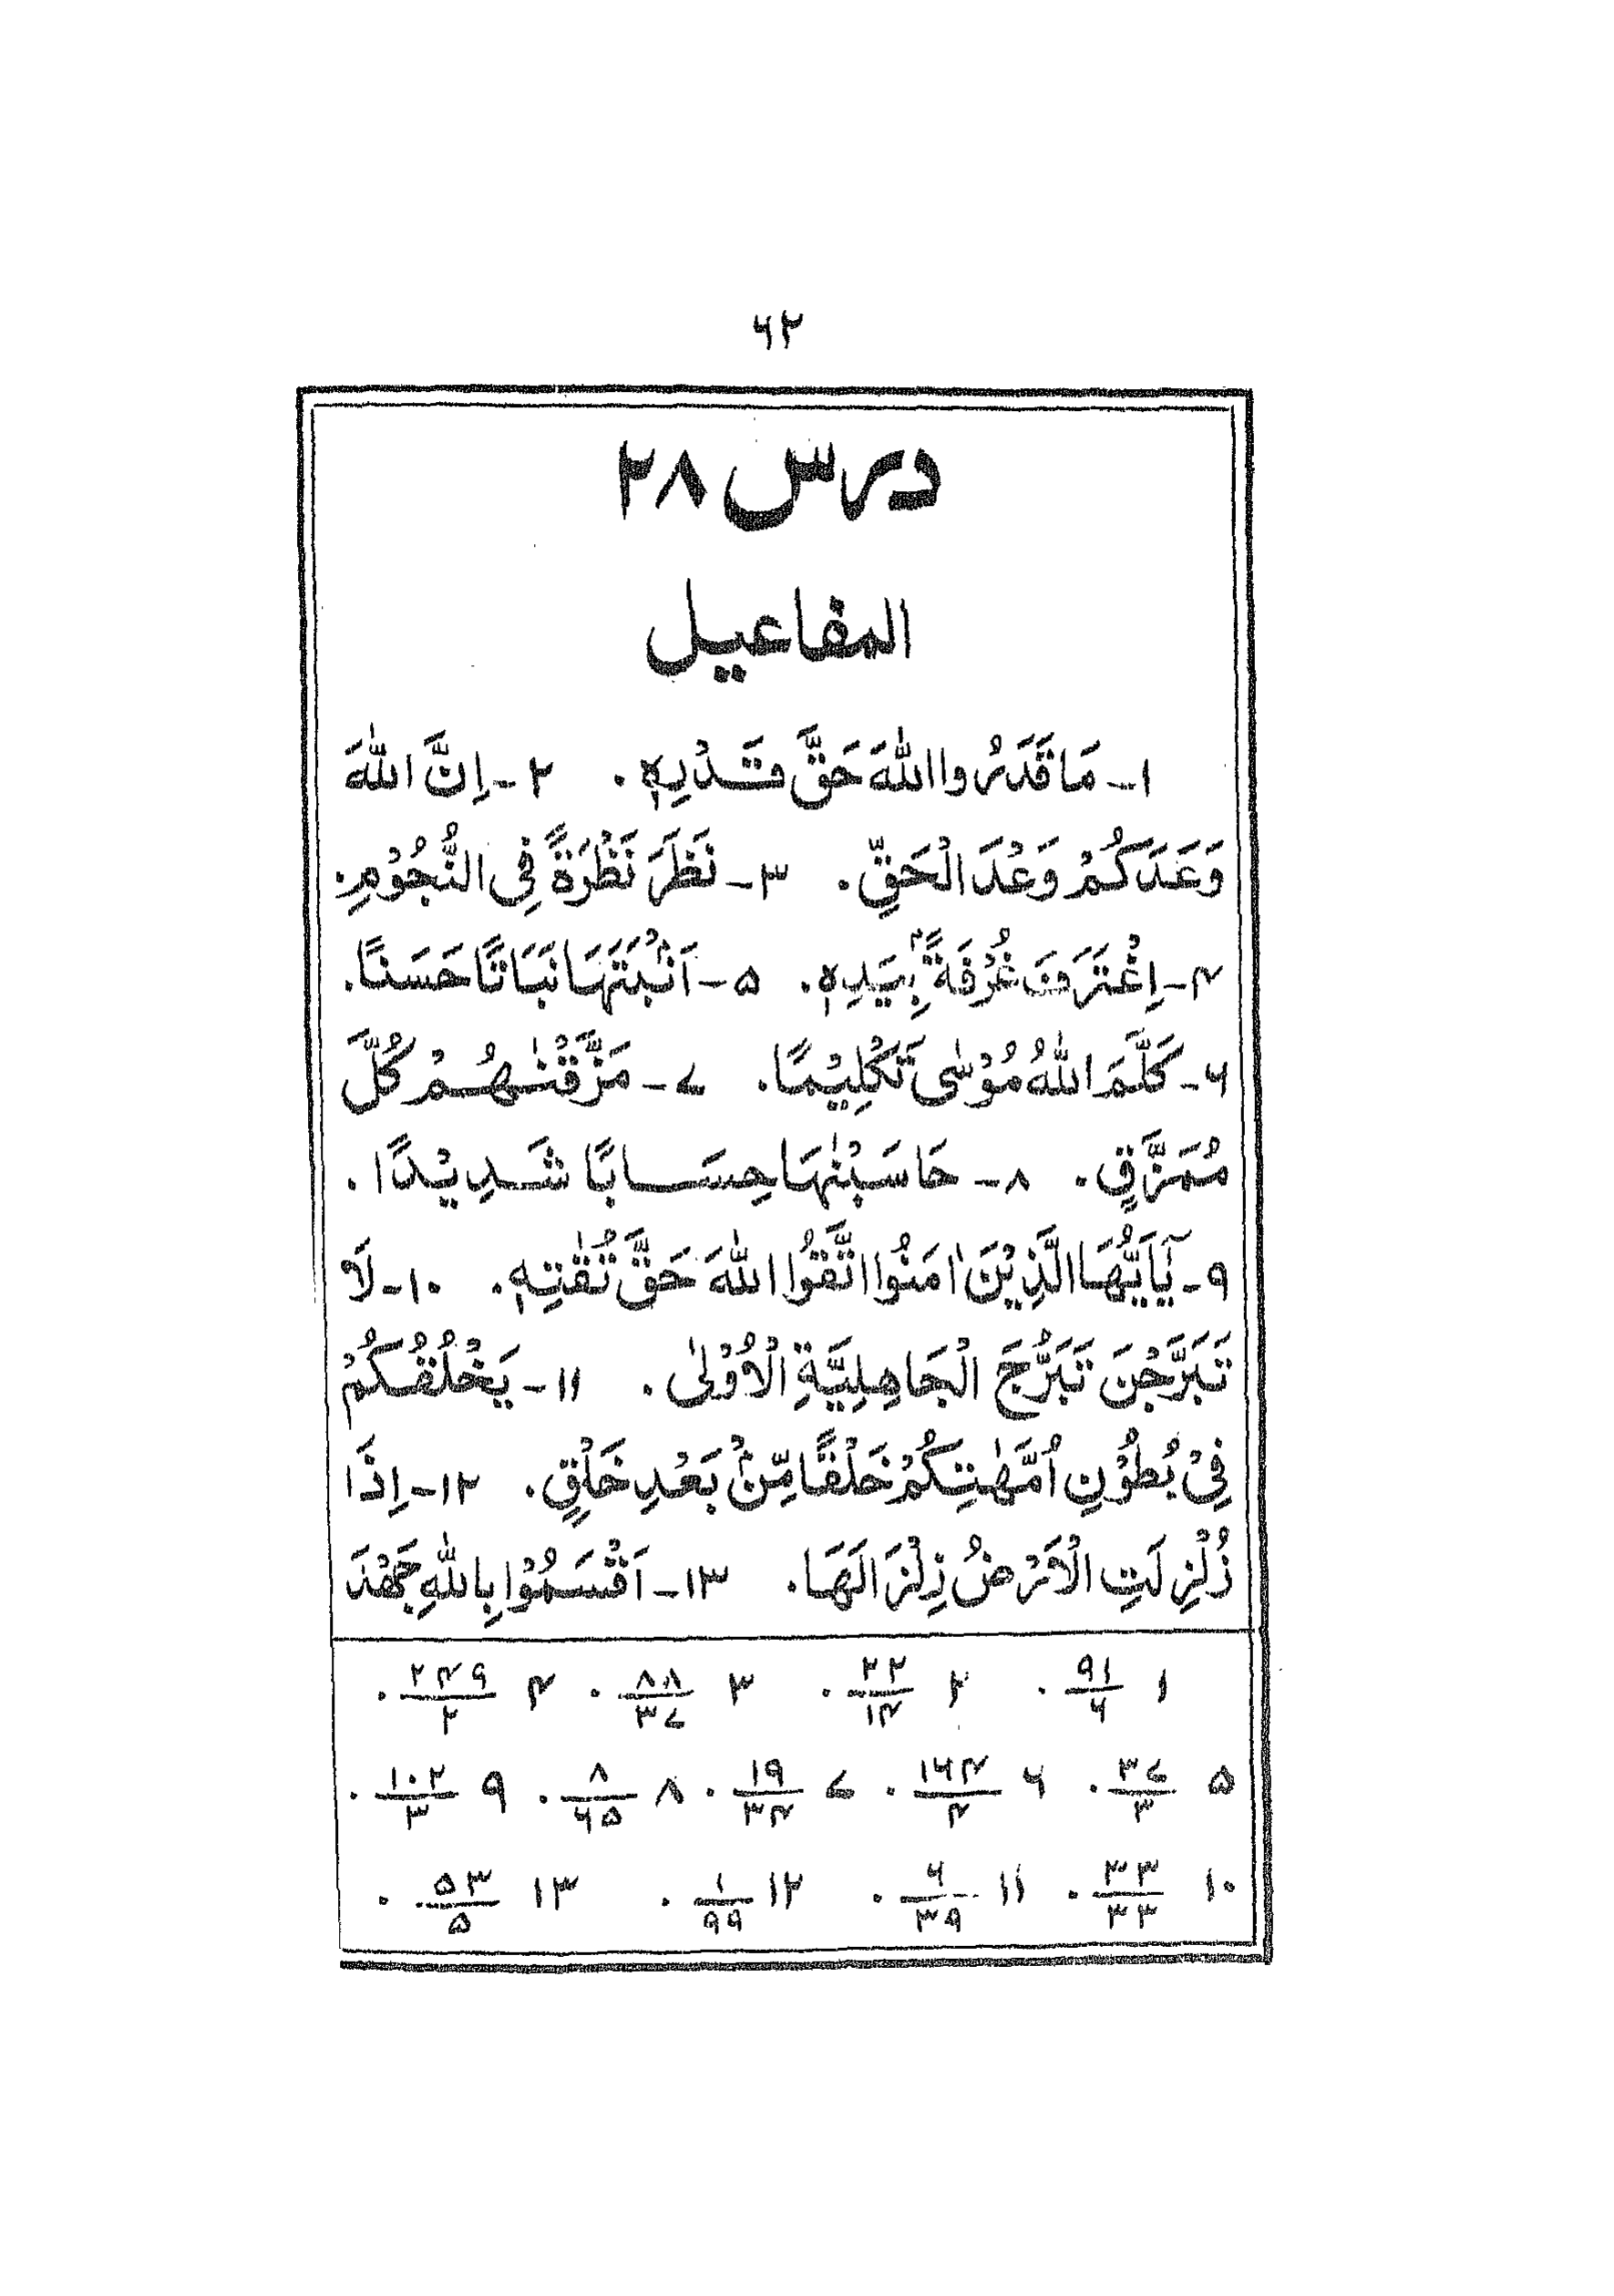 ۶۲
درس ۲۸
المفاعیل
۱- مَا قَدَرُوا اللّٰهَ حَقَّ قَدْرِهٖ. ۲- اِنَّ اللّٰهَ
وَعَدَكُمْ وَعْدَ الْحَقِّ. ۳- نَظَرَ نَظْرَةً فِى النُّجُوْمِ.
۴- اِغْتَرَفَ غُرْفَةًۢ بِيَدِهٖ. ۵- اَنْۢبَتَهَا نَبَاتًا حَسَنًا.
۶- كَلَّمَ اللّٰهُ مُوْسٰى تَكْلِيْمًا. ۷- مَزَّقْنٰهُمْ كُلَّ
مُمَزَّقٍ. ۸- حَاسَبْنٰهَا حِسَابًا شَدِيْدًا.
۹- يٰٓاَيُّهَا الَّذِيْنَ اٰمَنُوا اتَّقُوا اللّٰهَ حَقَّ تُقٰتِهٖ. ۱۰- لَا
تَبَرَّجْنَ تَبَرُّجَ الْجَاهِلِيَّةِ الْاُوْلٰى. ۱۱- يَخْلُقُكُمْ
فِيْ بُطُوْنِ اُمَّهٰتِكُمْ خَلْقًا مِّنْۢ بَعْدِ خَلْقٍ. ۱۲- اِذَا
زُلْزِلَتِ الْاَرْضُ زِلْزَالَهَا. ۱۳- اَقْسَمُوْا بِاللّٰهِ جَهْدَ
۱ ۹۱/۶. ۲ ۲۲/۱۴. ۳ ۸۸/۳۷. ۴ ۲۴۹/۲.
۵ ۳۷/۳. ۶ ۱۶۴/۴. ۷ ۱۹/۳۴. ۸ ۸/۶۵. ۹ ۱۰۲/۳.
۱۰ ۳۳/۳۳. ۱۱ ۶/۳۹. ۱۲ ۱/۹۹. ۱۳ ۵۳/۵.